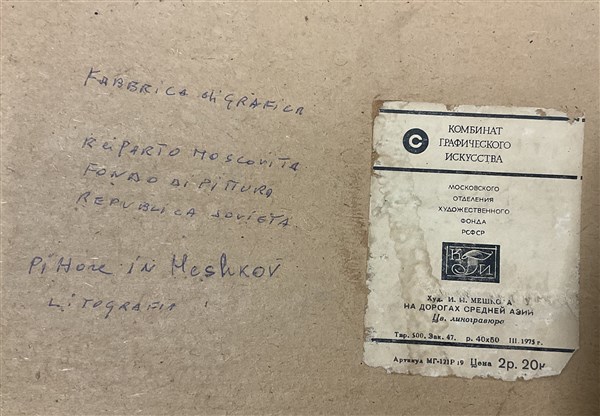 FABBRICA di GRAFICA
REPARTO MOSCOVITA
FONDO DI PITTURA
REPUBLICA SOVIETA
PITTORE IN MESHKOV
LITOGRAFIA
C
КОМБИНАТ
ГРАФИЧЕСКОГО
ИСКУССТВА
МОСКОВСКОГО
ОТДЕЛЕНИЯ
ХУДОЖЕСТВЕННОГО
ФОНДА
РСФСР
К Г И
Худ. И. Н. МЕШКОВА
НА ДОРОГАХ СРЕДНЕЙ АЗИИ
Цв. линогравюра
Тир. 500, Зак. 47. р. 40x50 III. 1975 г.
Артикул МГ-121Р 19 Цена 2р. 20к